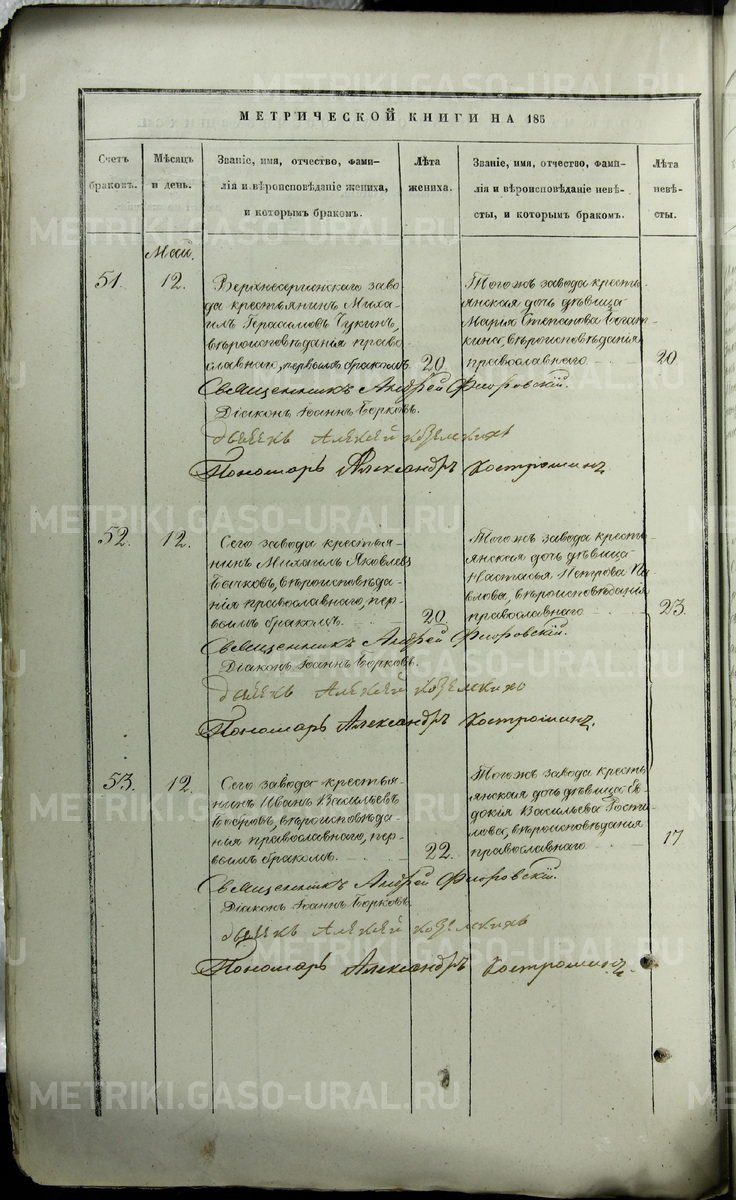 МЕТРИЧЕСКОЙ КНИГИ НА 185
Счетъ браковъ.
Мѣсяцъ и день.
Званіе, имя, отчество, фами-
лія и вѣроисповѣданіе жениха,
и которымъ бракомъ.
Лѣта жениха.
Званіе, имя, отчество, фами-
лія и вѣроисповѣданіе невѣ-
сты, и которымъ бракомъ.
Лѣта невѣ-
сты.
Май.
51.
12.
Верхнесергинскаго заво
да крестьянинъ Миха-
илъ Герасимовъ Чукинъ,
вѣроисповѣданія право
славнаго, первымъ бракомъ
20
Тогожъ завода кресть
янская дочь дѣвица
Марья Степанова
вѣроисповѣданія
православнаго
20
Священникъ Андрей Флоровскій.
Діаконъ Іоаннъ Борковъ.
Алексей
Пономарь Александръ Костроминъ
52.
12.
Сего завода крестья-
нинъ Михаилъ Яковлевъ
Бычковъ, вѣроисповѣда-
нія православнаго, пер-
вымъ бракомъ.
20
Тогожъ завода кресть
янская дочь дѣвица
Настасья Петрова Па
влова, вѣроисповѣданія
православнаго
23.
Священникъ Андрей Флоровскій.
Діаконъ Іоаннъ Борковъ.
Алексей
Пономарь Александръ Костроминъ.
53.
12.
Сего завода крестья-
нинъ Иванъ Васильевъ
Бобровъ, вѣроисповѣда-
нія православнаго, пер-
вымъ бракомъ.
22.
Тогожъ завода кресть
янская дочь дѣвица Ев
докія Васильева
вѣроисповѣданія
православнаго
17
Священникъ Андрей Флоровскій.
Діаконъ Іоаннъ Борковъ.
Алексей
Пономарь Александръ Костроминъ.
METRIKI.GASO-URAL.RU